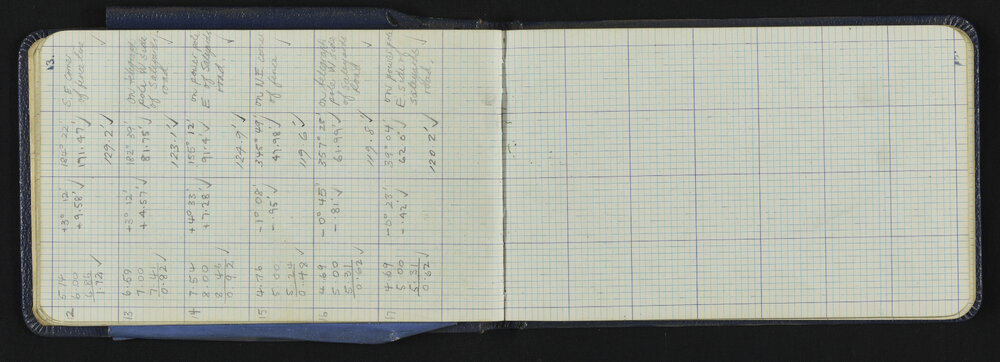 13.
12 5.14 +3° 12' 184° 22' S.E. corner
6.00 +9.58'✓ 171.47'✓ of fence line ✓
6.86
1.72 ✓ 129.2'✓
13 6.59 +3° 12' 182° 39' on telegraph
7.00 +4.57'✓ 81.75'✓ pole W side
7.41 of Saleyards
0.82 ✓ 123.1'✓ road ✓
14 7.54 +4° 33' 155° 12' on power pole
8.00 +7.28'✓ 91.4'✓ E of Saleyards
8.46 road. ✓
0.92 ✓ 124.9'✓
15 4.76 -1° 08' 345° 49' on NE corner
5.00 -.95'✓ 47.98'✓ of fence ✓
5.24
0.48 ✓ 119.6'✓
16 4.69 -0° 45' 357° 28' on telegraph
5.00 -.81'✓ 61.99'✓ pole W side
5.31 of Saleyards
0.62 ✓ 119.8'✓ Road ✓
17 4.69 -0° 23' 39° 04' on power pole
5.00 -.42'✓ 62.0'✓ E side of
5.31 saleyards
0.62 ✓ 120.2'✓ road. ✓